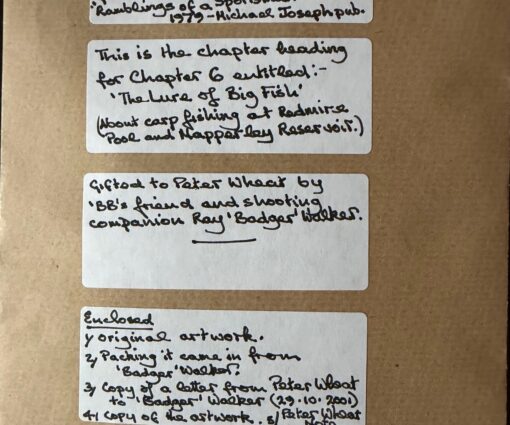 'Ramblings of a Sportsman
1979 - Michael Joseph pub.
This is the chapter heading
for Chapter 6 entitled:-
'The Lure of Big Fish'
(About carp fishing at Redmire
Pool and Mapperley Reservoir.)
Gifted to Peter Wheat by
'BB's friend and shooting
companion Ray 'Badger' Walker.
Enclosed
1/ original artwork.
2/ Packing it came in from
'Badger' Walker.
3/ Copy of a letter from Peter Wheat
to 'Badger' Walker (29.10.2001)
4/ Copy of the artwork. 5/ Peter Wheat
Note